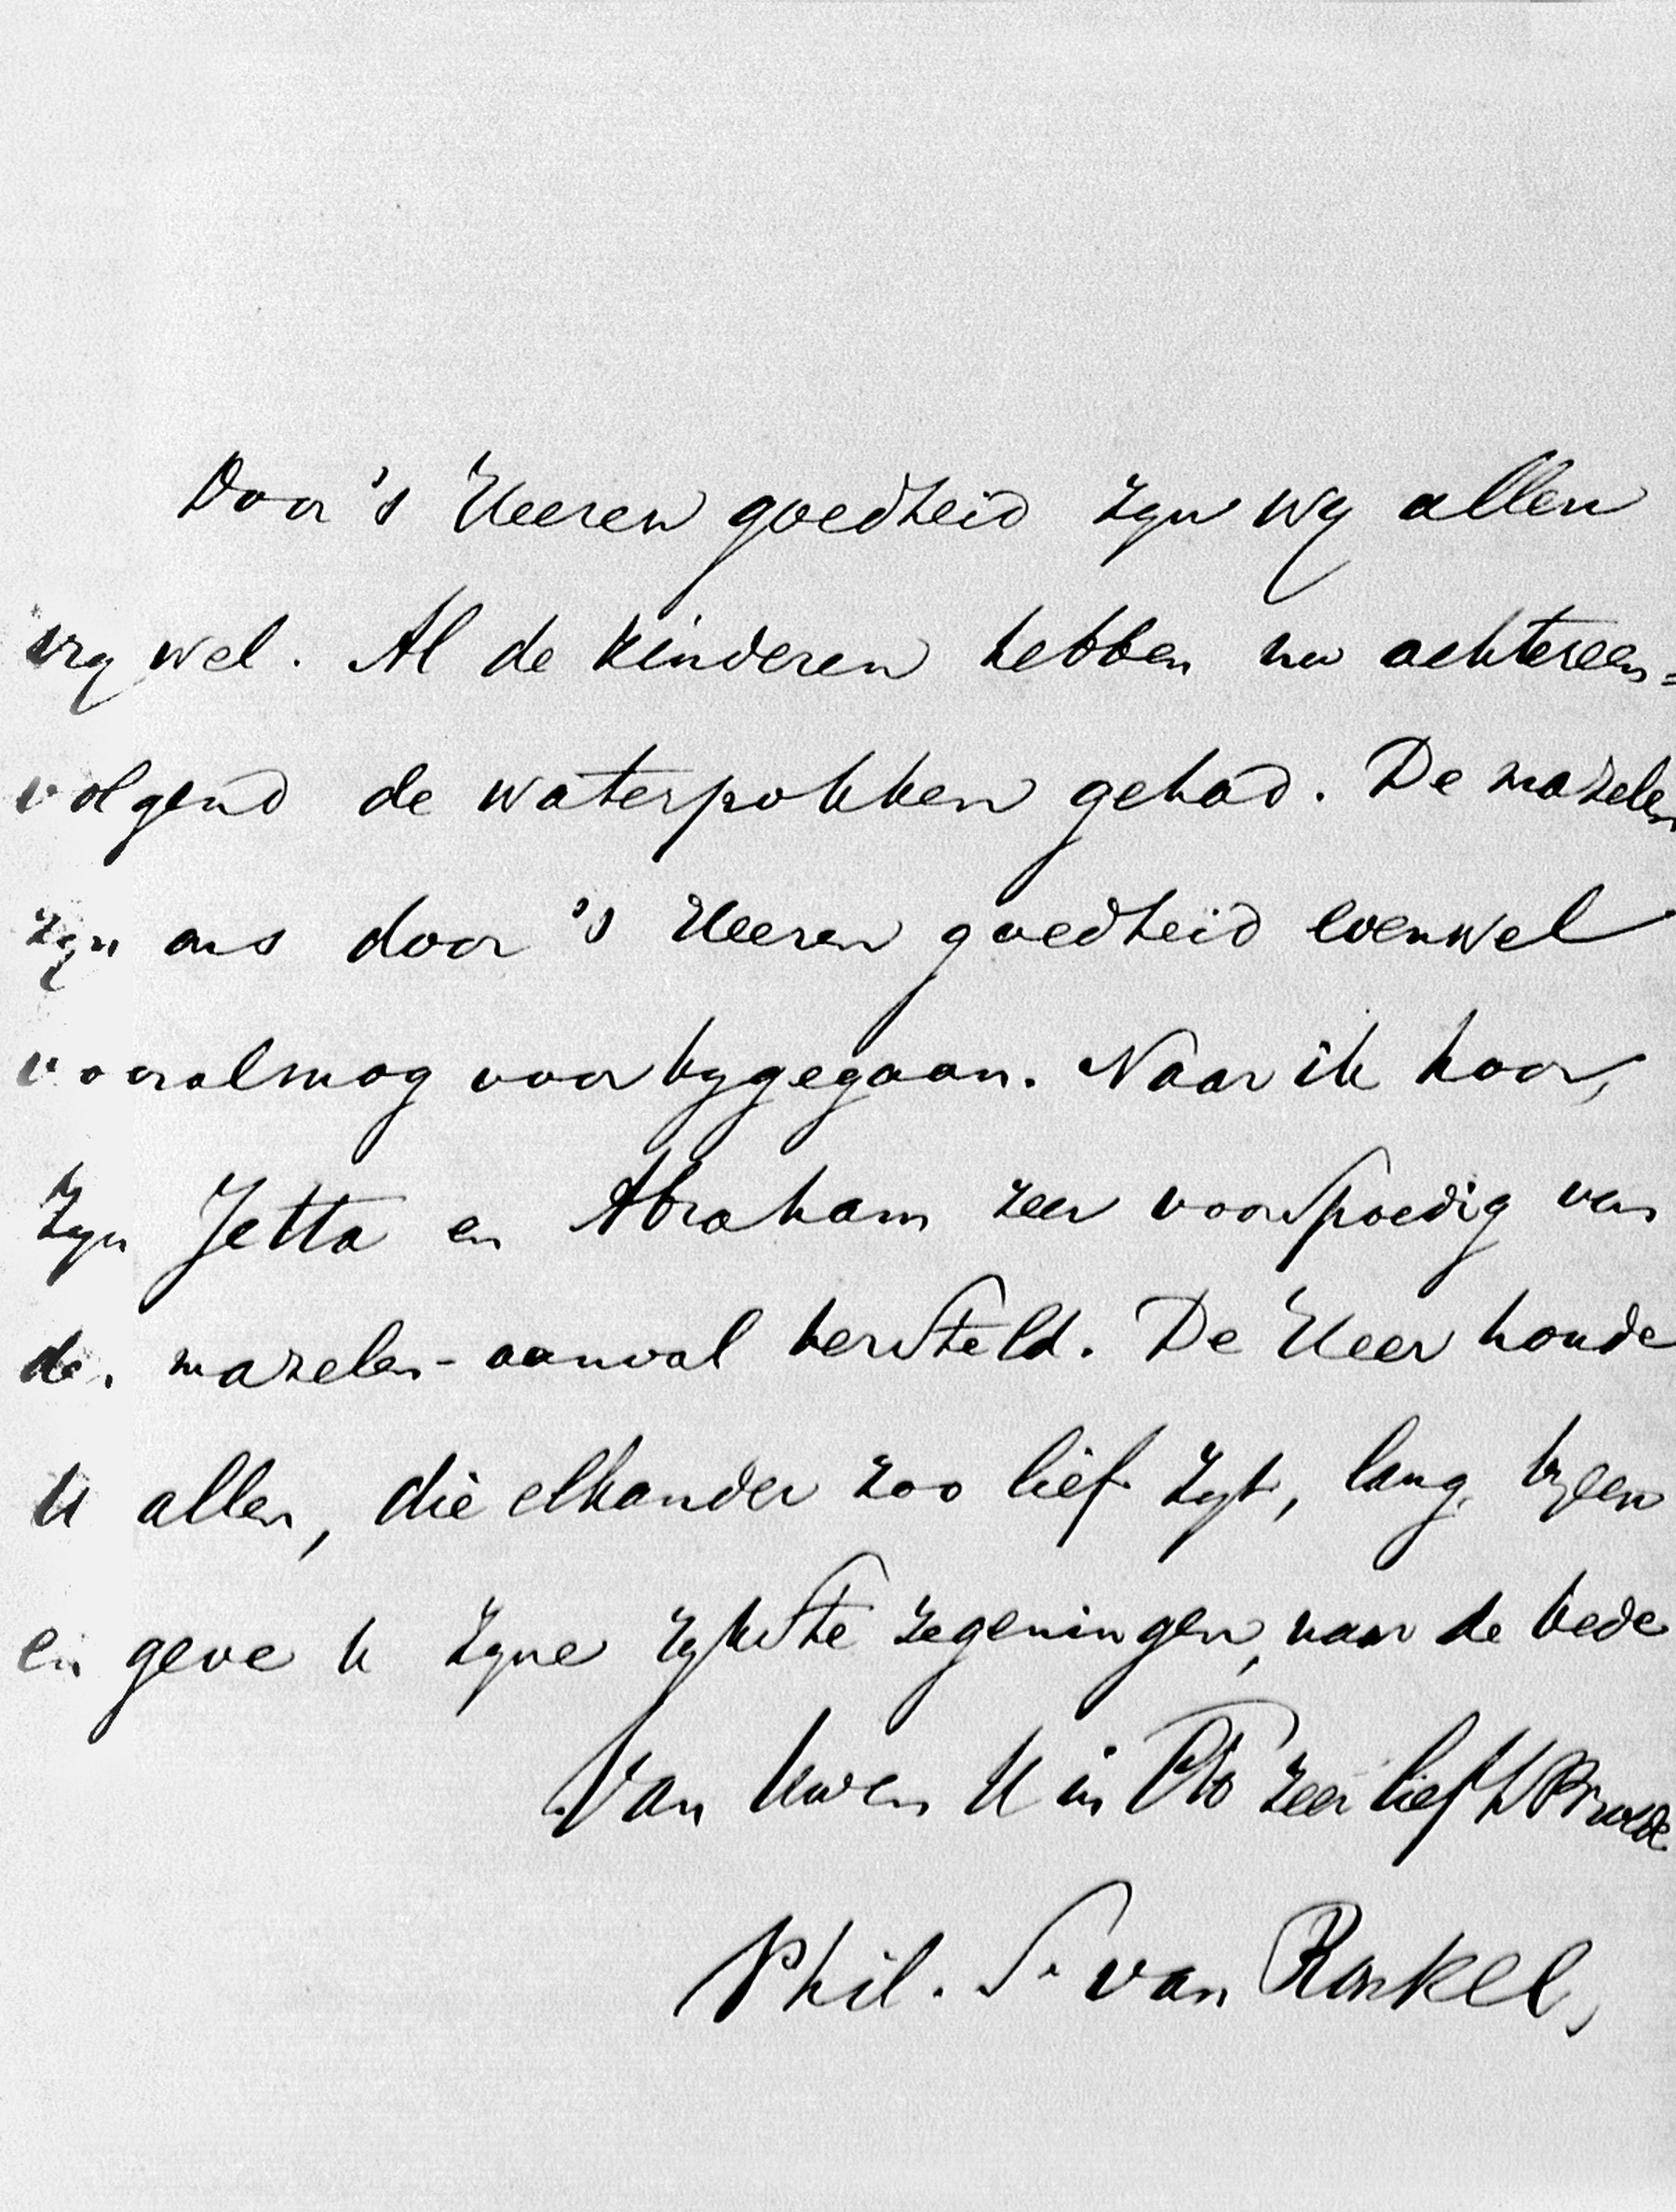 Door 's Heeren goedheid zyn wy allen
vry wel. Al de kinderen hebben nu achtereen=
volgend de waterpokken gehad. De mazelen
zyn ons door 's Heeren goedheid evenwel
vooralsnog voorbygegaan. Naar ik hoor,
zyn Jetta en Abraham zeer voorspoedig van
den mazelen-aanval hersteld. De Heer houde
U allen, die elkander zoo lief zyt, lang byeen
en geve U zyne rykste zegeningen, naar de bede
Van Uwen U in Chro zeer liefh Broeder
Phil. S. van Ronkel,